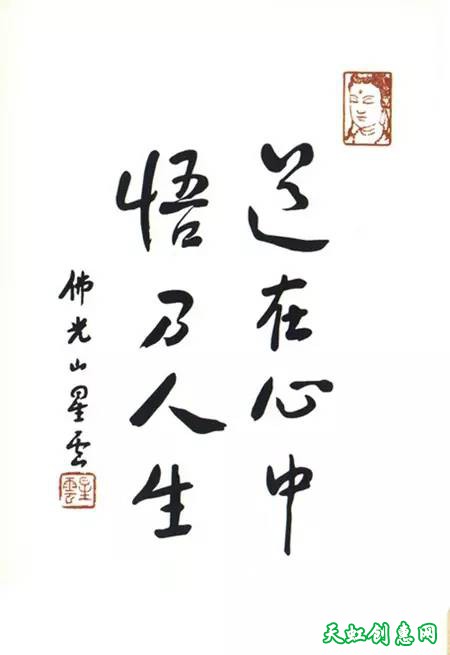 道在心中
悟乃人生
佛光山星雲
星雲
天虹创惠网